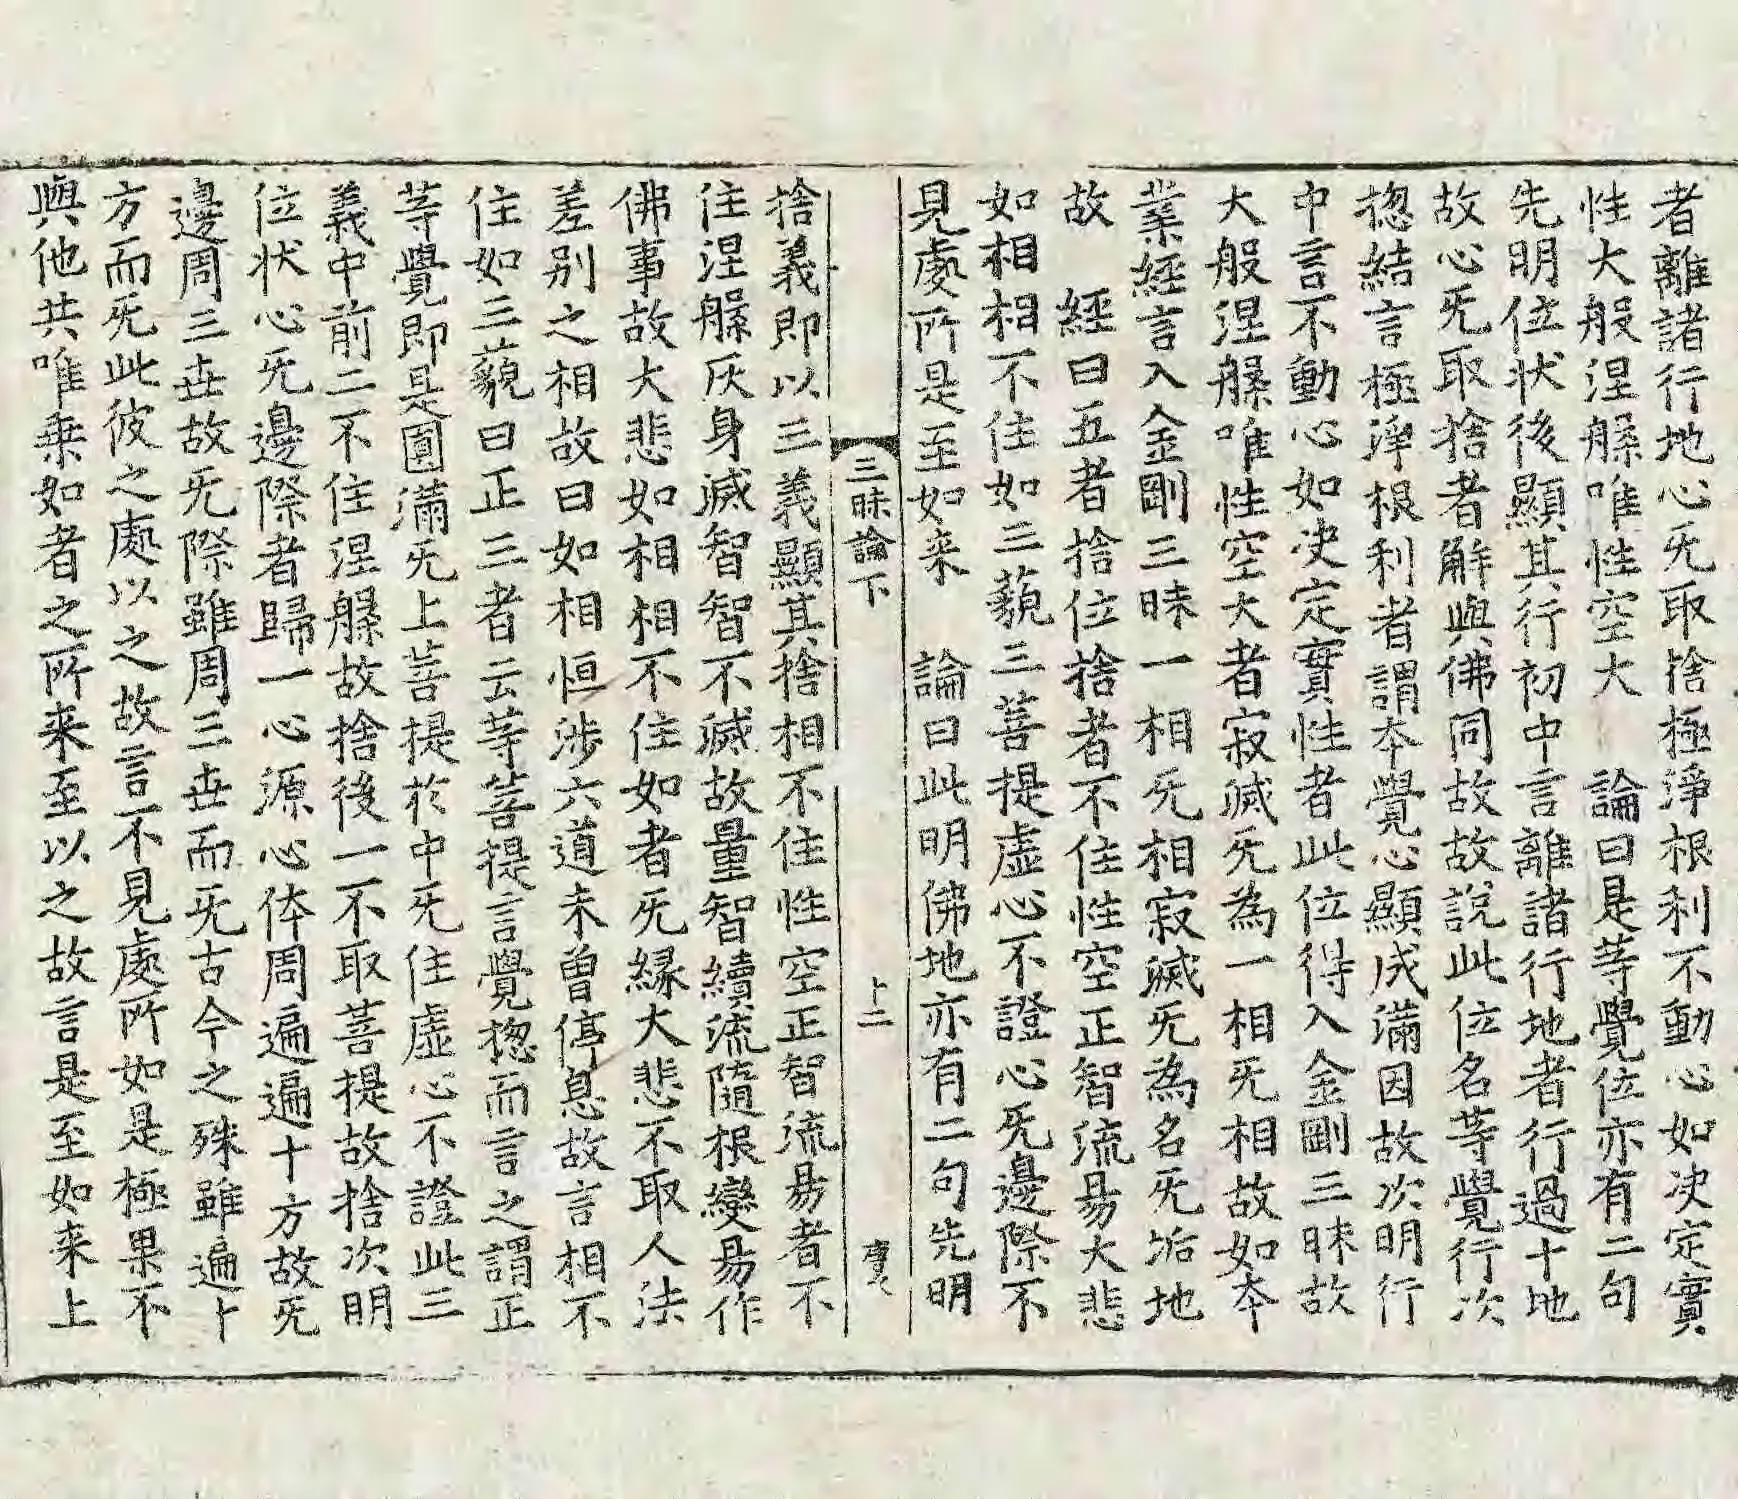 者離諸行地心旡取捨極淨根利不動心如决定實
性大般涅槃唯性空大　論曰是等覺位亦有二句
先明位状後顯其行初中言離諸行地者行過十地
故心旡取捨者解與佛同故故說此位名等覺行次
揔結言極淨根利者謂本覺心顯成滿因故次明行
中言不動心如决定實性者此位得入金剛三昧故
大般涅槃唯性空大者寂滅旡為一相旡相故如本
業經言入金剛三昧一相旡相寂滅旡為名旡垢地
故　經曰五者捨位捨者不住性空正智流易大悲
如相相不住如三藐三菩提虛心不證心旡邊際不
見處所是至如来　論曰此明佛地亦有二句先明
三昧論下　卜二
捨義即以三義顯其捨相不住性空正智流易者不
住涅槃灰身滅智智不滅故量智續流隨根變易作
佛事故大悲如相相不住如者旡緣大悲不取人法
差别之相故曰如相恒涉六道未曾停息故言相不
住如三藐曰正三者云等菩提言覺揔而言之謂正
等覺即是圓滿旡上菩提於中旡住虛心不證此三
義中前二不住涅槃故捨後一不取菩提故捨次明
位状心旡邊際者歸一心源心体周遍遍十方故旡
邊周三世故旡際雖周三世而旡古今之殊雖遍十
方而旡此彼之處以之故言不見處所如是極果不
與他共唯乘如者之所来至以之故言是至如来上